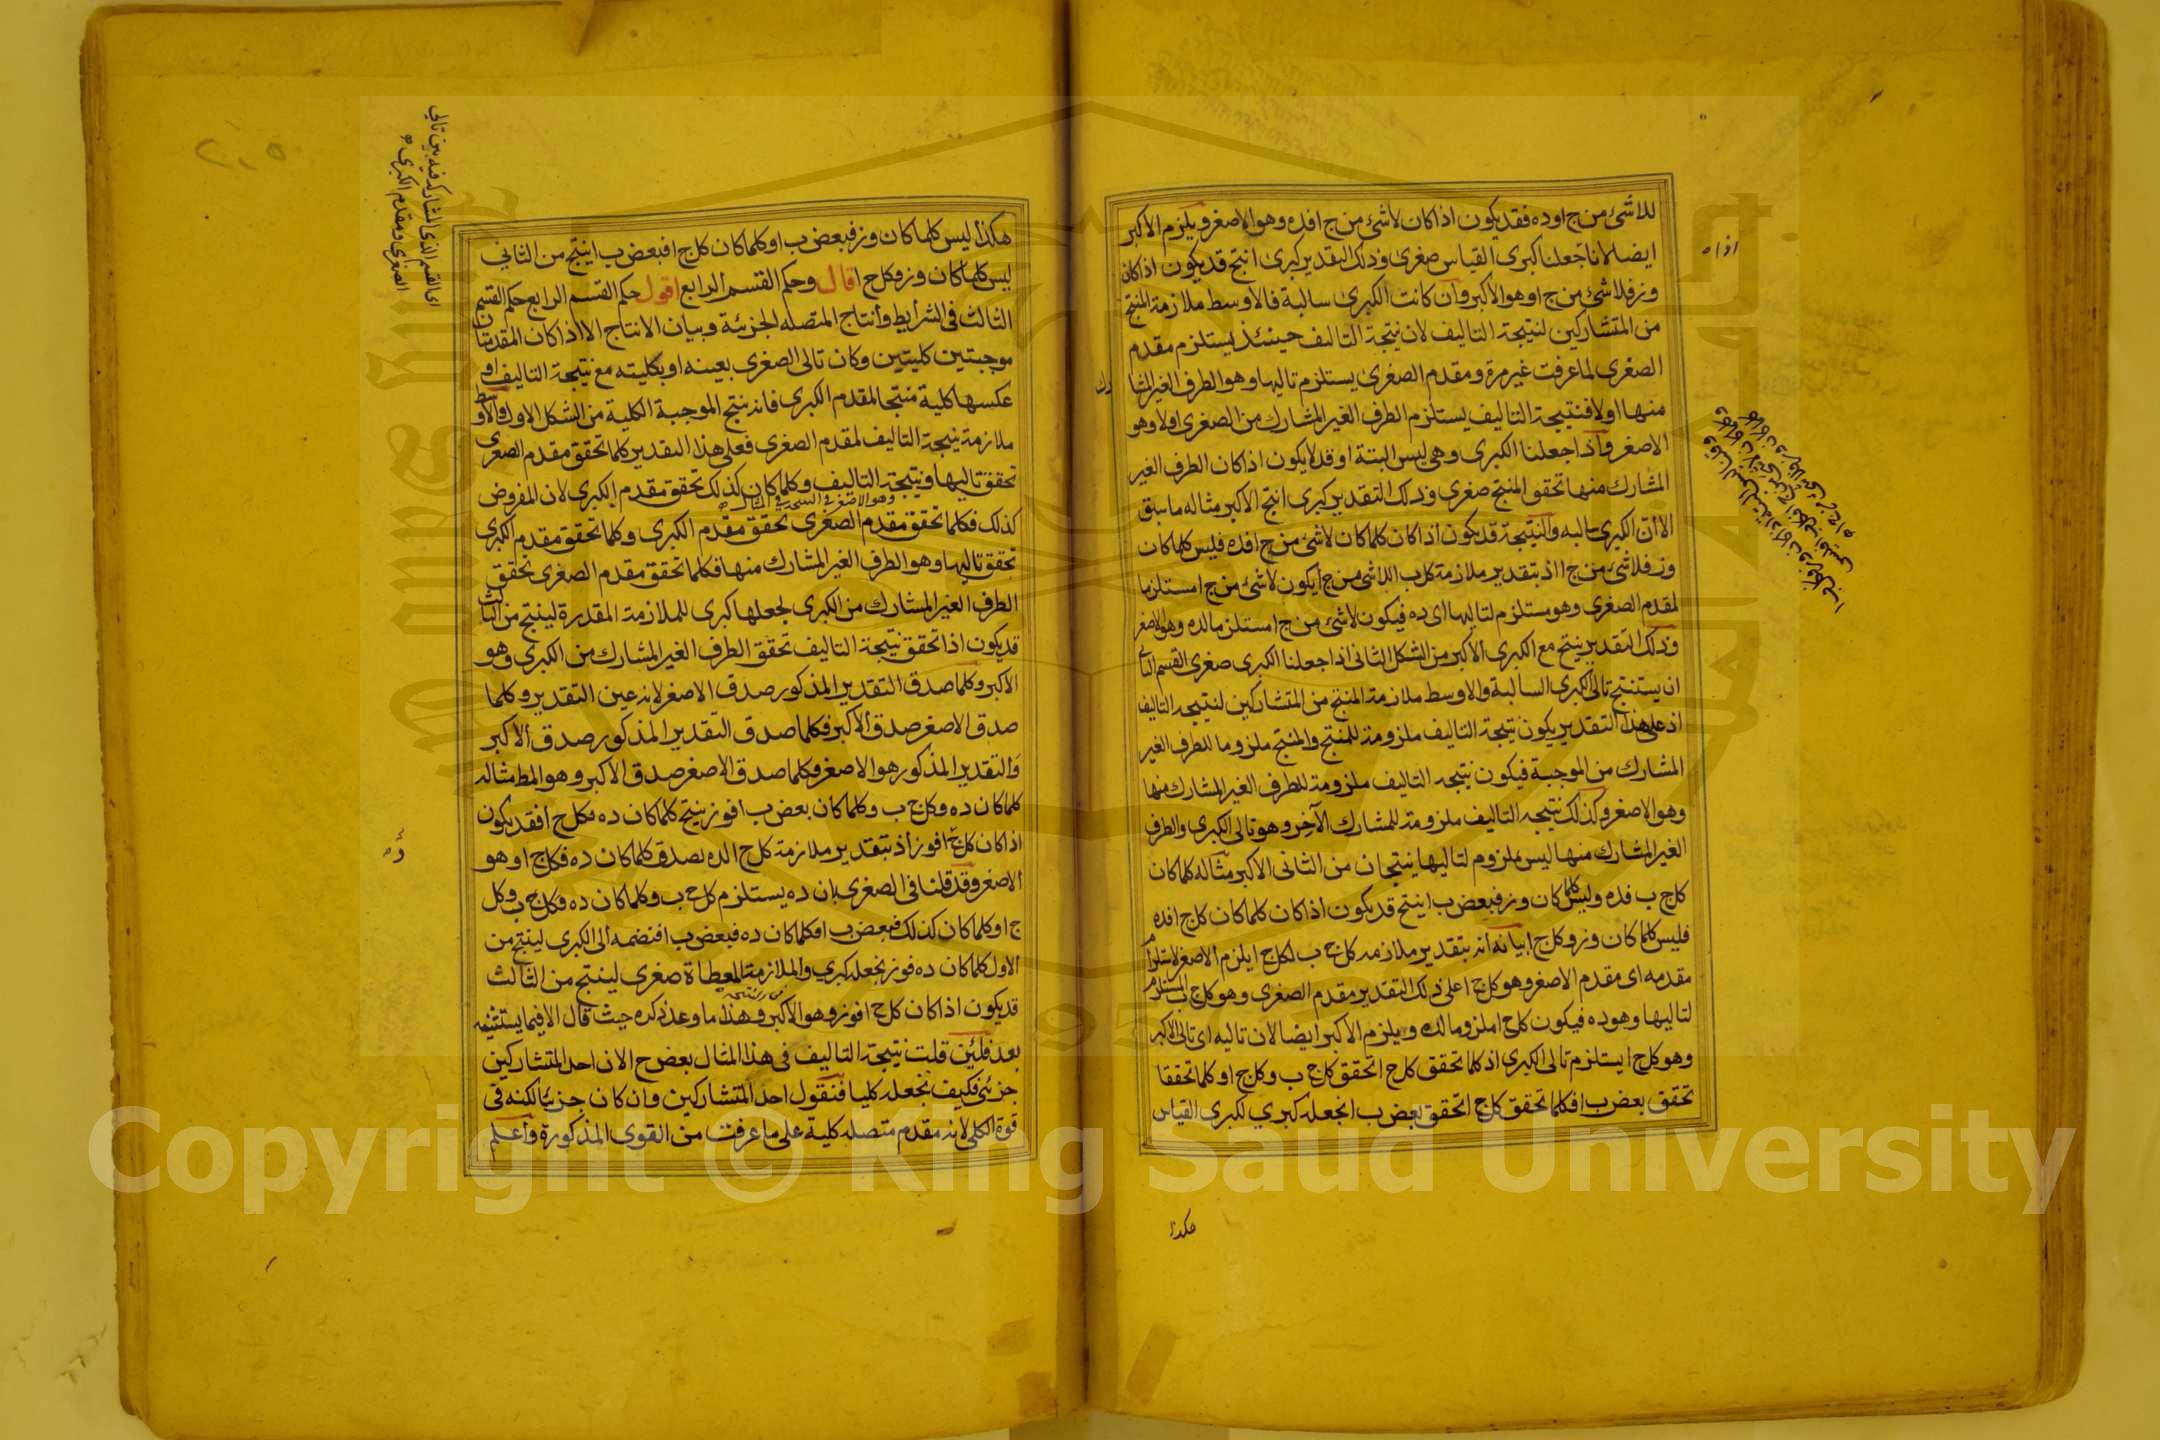 للاشئ من ج او ده فقد يكون اذا كان لاشئ من ج ا فده وهو الاصغر ويلزم الاكبر
ايضا لانا نجعلنا كبرى القياس صغرى وذلك التقدير كبرى انتج قد يكون اذا كان
وز فلاشئ من ج ا وهو الاكبر وان كانت الكبرى سالبة فالاوسط ملازمة المنتج
من المتشاركين لنتيجة التاليف لان نتيجة التاليف حينئذ يستلزم مقدم
الصغرى لما عرفت غير مرة ومقدم الصغرى يستلزم تاليها وهو الطرف الغير المشا
منها اولا فنتيجة التاليف يستلزم الطرف الغير المشارك من الصغرى اولا وهو
الاصغر واذا جعلنا الكبرى وهى ليس البتة او قد لا يكون اذا كان الطرف الغير
المشارك منها تحقق المنتج صغرى وذلك التقدير كبرى انتج الاكبر مثاله ما سبق
الا ان الكبرى سالبه والنتيجة قد يكون اذا كان كلما كان لاشئ من ج ا فده فليس كلما كان
وز فلاشئ من ج ا اذ بتقدير ملازمة كل ب ا للاشئ من ج ا يكون لاشئ من ج ا مستلزما
لمقدم الصغرى وهو مستلزم لتاليها اى ده فيكون لاشئ من ج ا مستلزما لده وهو الاصغر
وذلك التقدير ينتج مع الكبرى الاكبر من الشكل الثانى اذا جعلنا الكبرى صغرى القسم الثا
ان يستنتج تالى الكبرى السالبة والاوسط ملازمة المنتج من المتشاركين لنتيجه التاليف
اذ على هذا التقدير يكون نتيجة التاليف ملزومة للمنتج والمنتج ملزوما للطرف الغير
المشارك من الموجبة فيكون نتيجه التاليف ملزومة للطرف الغير المشارك منها
وهو الاصغر وكذلك نتيجه التاليف ملزومة للمشارك الآخر وهو تالى الكبرى والطرف
الغير المشارك منها ليس ملزوم لتاليها ينتجان من الثانى الاكبر مثاله كلما كان
كل ج ب فده وليس كلما كان وز فبعض ب ا ينتج قد يكون اذا كان كلما كان كل ج ا فده
فليس كلما كان وز وكل ج ا بيانه انه بتقدير ملازمه كل ج ب لكل ج ا يلزم الاصغر لاستلزام
مقدمه اى مقدم الاصغر وهو كل ج ا على ذلك التقدير مقدم الصغرى وهو كل ج ب المستلزم
لتاليها وهو ده فيكون كل ج ا ملزوما لده ويلزم الاكبر ايضا لان تاليه اى تالى الاكبر
وهو كل ج ا يستلزم تالى الكبرى اذ كلما تحقق كل ج ا تحقق كل ج ب وكل ج ا وكلما تحققا
تحقق بعض ب ا فكلما تحقق كل ج ا تحقق بعض ب ا نجعله كبرى لكبرى القياس
هكذا
اذا ه
رك
هكذا ليس كلما كان وز فبعض ب ا وكلما كان كل ج ا فبعض ب ا ينتج من الثانى
ليس كلما كان وز فكل ج ا قال وحكم القسم الرابع اقول حكم القسم الرابع حكم القسم
الثالث فى الشرايط وأنتاج المتصله الجزئية وبيان الانتاج الا اذا كان المقدمتان
موجبتين كليتين وكان تالى الصغرى بعينه او بكليته مع نتيجة التاليف او
عكسها كلية منتجا لمقدم الكبرى فانه ينتج الموجبة الكلية من الشكل الاول والاوسط
ملازمة نتيجة التاليف لمقدم الصغرى فعلى هذا التقدير كلما تحقق مقدم الصغرى
تحقق تاليها ونتيجة التاليف وكلما كان كذلك تحقق مقدم الكبرى لان المفروض
كذلك فكلما تحقق مقدم الصغرى تحقق مقدم الكبرى وكلما تحقق مقدم الكبرى
تحقق تاليها وهو الطرف الغير المشارك منها فكلما تحقق مقدم الصغرى تحقق
الطرف الغير المشارك من الكبرى نجعلها كبرى للملازمة المقدرة لينتج من الثالث
قد يكون اذا تحقق نتيجة التاليف تحقق الطرف الغير المشارك من الكبرى وهو
الاكبر وكلما صدق التقدير المذكور صدق الاصغر لانه عين التقدير وكلما
صدق الاصغر صدق الاكبر فكلما صدق التقدير المذكور صدق الاكبر
والتقدير المذكور هو الاصغر وكلما صدق الاصغر صدق الاكبر وهو المط مثاله
كلما كان ده وكل ج ب وكلما كان بعض ب ا فوز ينتج كلما كان ده فكل ج ا فقد يكون
اذا كان كل ج ا فوز أذ بتقدير ملازمة كل ج ا لده يصدق كلما كان ده فكل ج ا وهو
الاصغر وقد قلنا فى الصغرى إن ده يستلزم كل ج ب وكلما كان ده فكل ج ب وكل
ج ا وكلما كان كذلك فبعض ب ا فكلما كان ده فبعض ب ا فنضمه الى الكبرى لينتج من
الاول كلما كان ده فوز نجعله كبرى والملازمة المعطاة صغرى لينتج من الثالث
قد يكون اذا كان كل ج ا فوز وهو الاكبر وهذا ما وعد ذكره حيث قال الا فيما يستثنيه
بعد فلئن قلت نتيجة التاليف فى هذا المثال بعض ج ا لان احد المتشاركين
جزئى فكيف نجعله كليا فنقول احد المتشاركين وان كان جزئيا لكنه فى
قوة الكلى لانه مقدم متصله كلية على ما عرفت من القوى المذكورة وأعلم
اى القسم الذى المشاركه فيه بين تالى
الصغرى ومقدم الكبرى